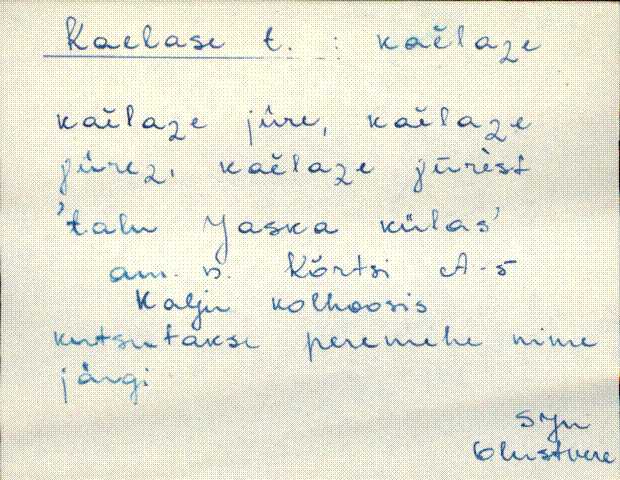 Kaelase t. : kaĕlaze
kaĕlaze jũre, kaĕlaze
jũrez, kaĕlaze jũrèst
'talu Jaska külas'
am. n. Kõrtsi A-5
Kalju kolhoosis
kutsutakse peremehe nime
järgi
SJn
Olustvere